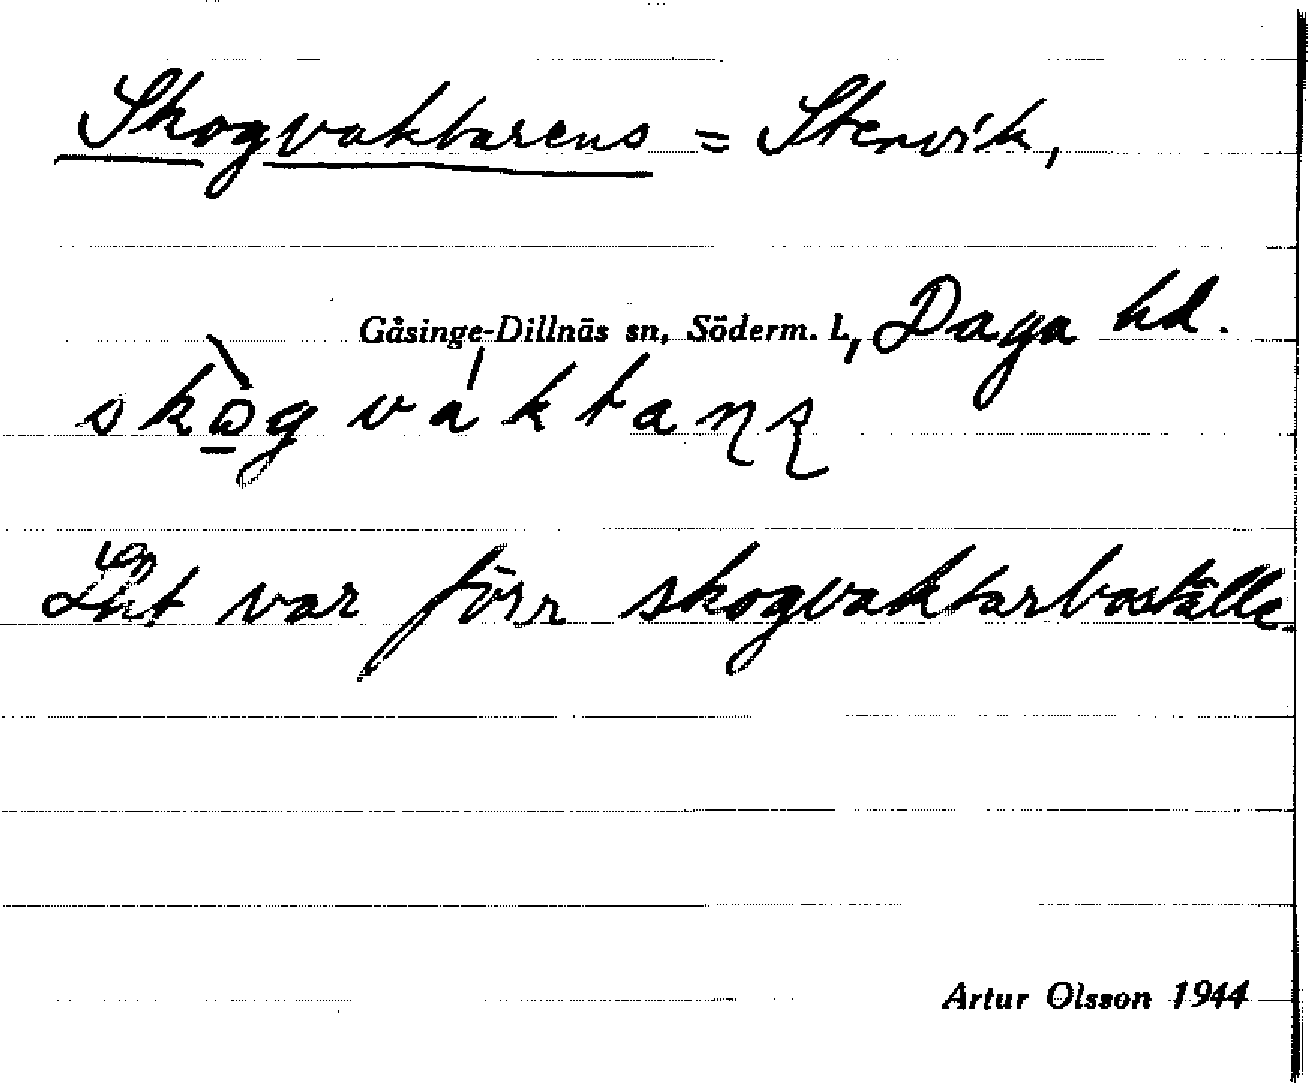 Skogvaktarens = Stenvik,
Gåsinge-Dillnäs sn, Söderm. L, Daga hd.
var förr skogvaktarboställe.
Artur Olsson 1944